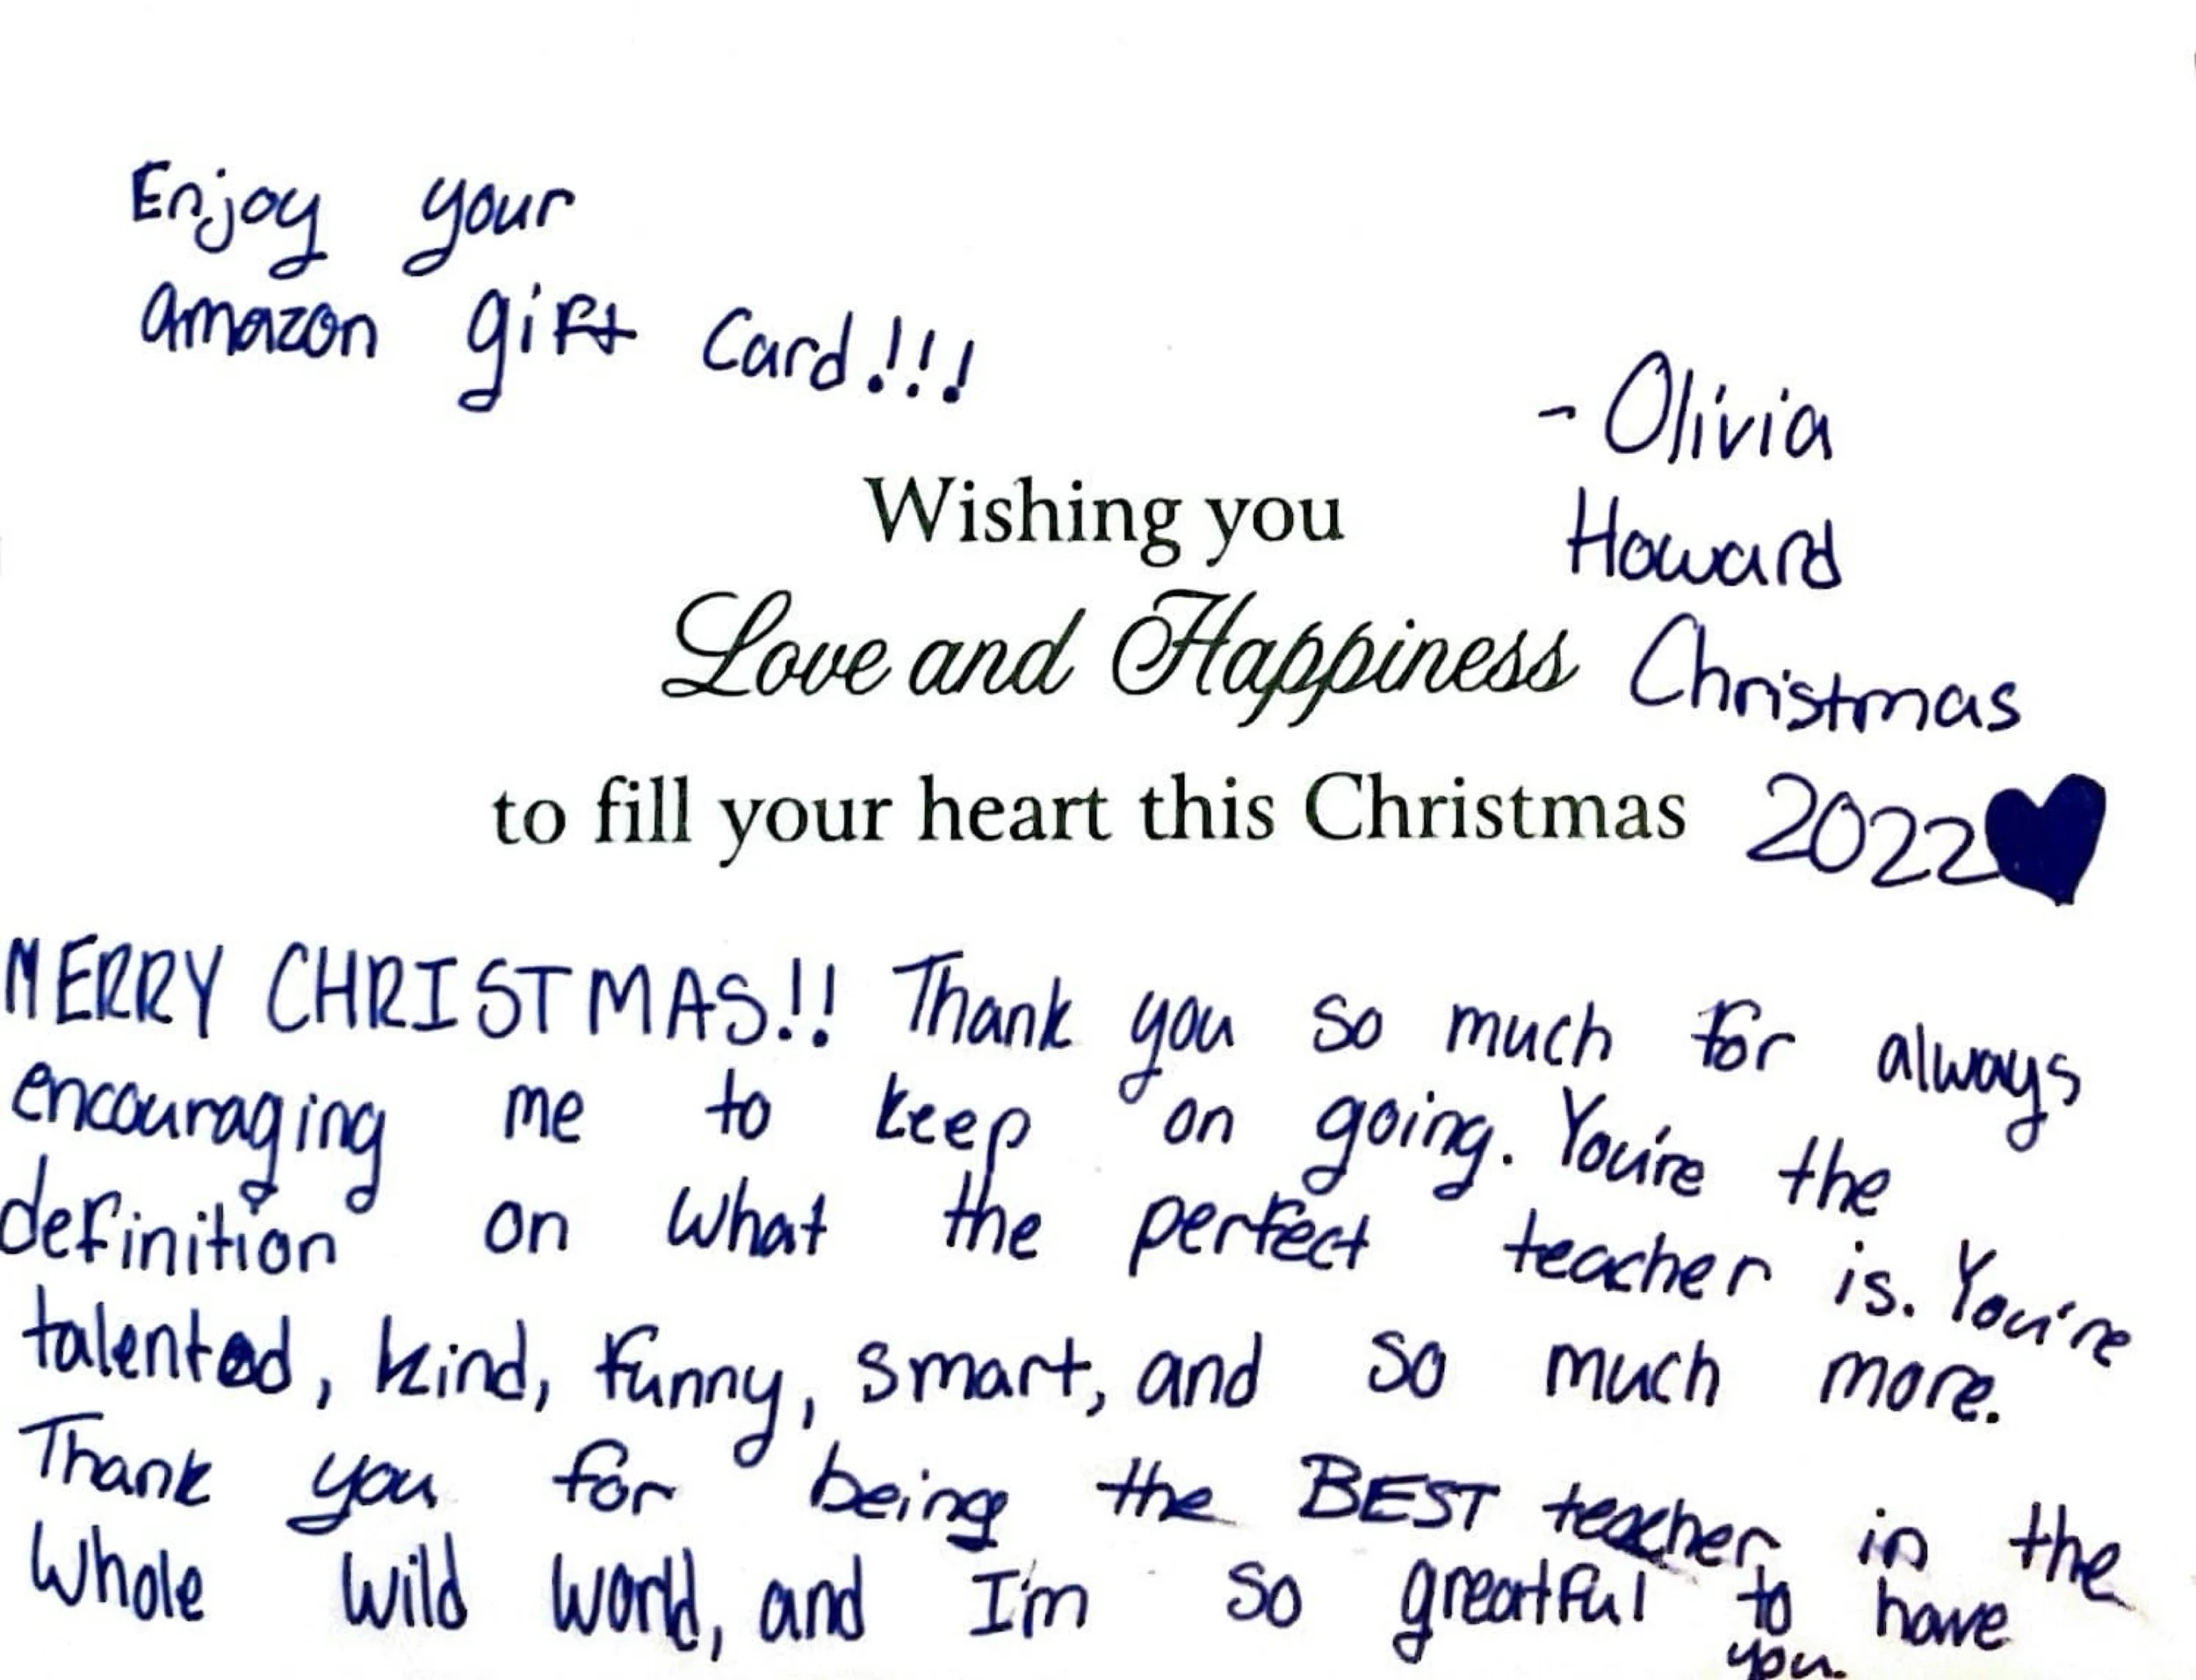 Enjoy your
amazon gift Card!!!
- Olivia
Howard
Christmas
2022
Wishing you
Love and Happiness
to fill your heart this Christmas
MERRY CHRISTMAS!! Thank you so much for always
encouraging me to keep on going. You're the
definition on what the perfect teacher is. You're
talented, kind, funny, smart, and so much more.
Thank you for being the BEST teacher in the
Whole wild world, and I'm so greatful to have
you.